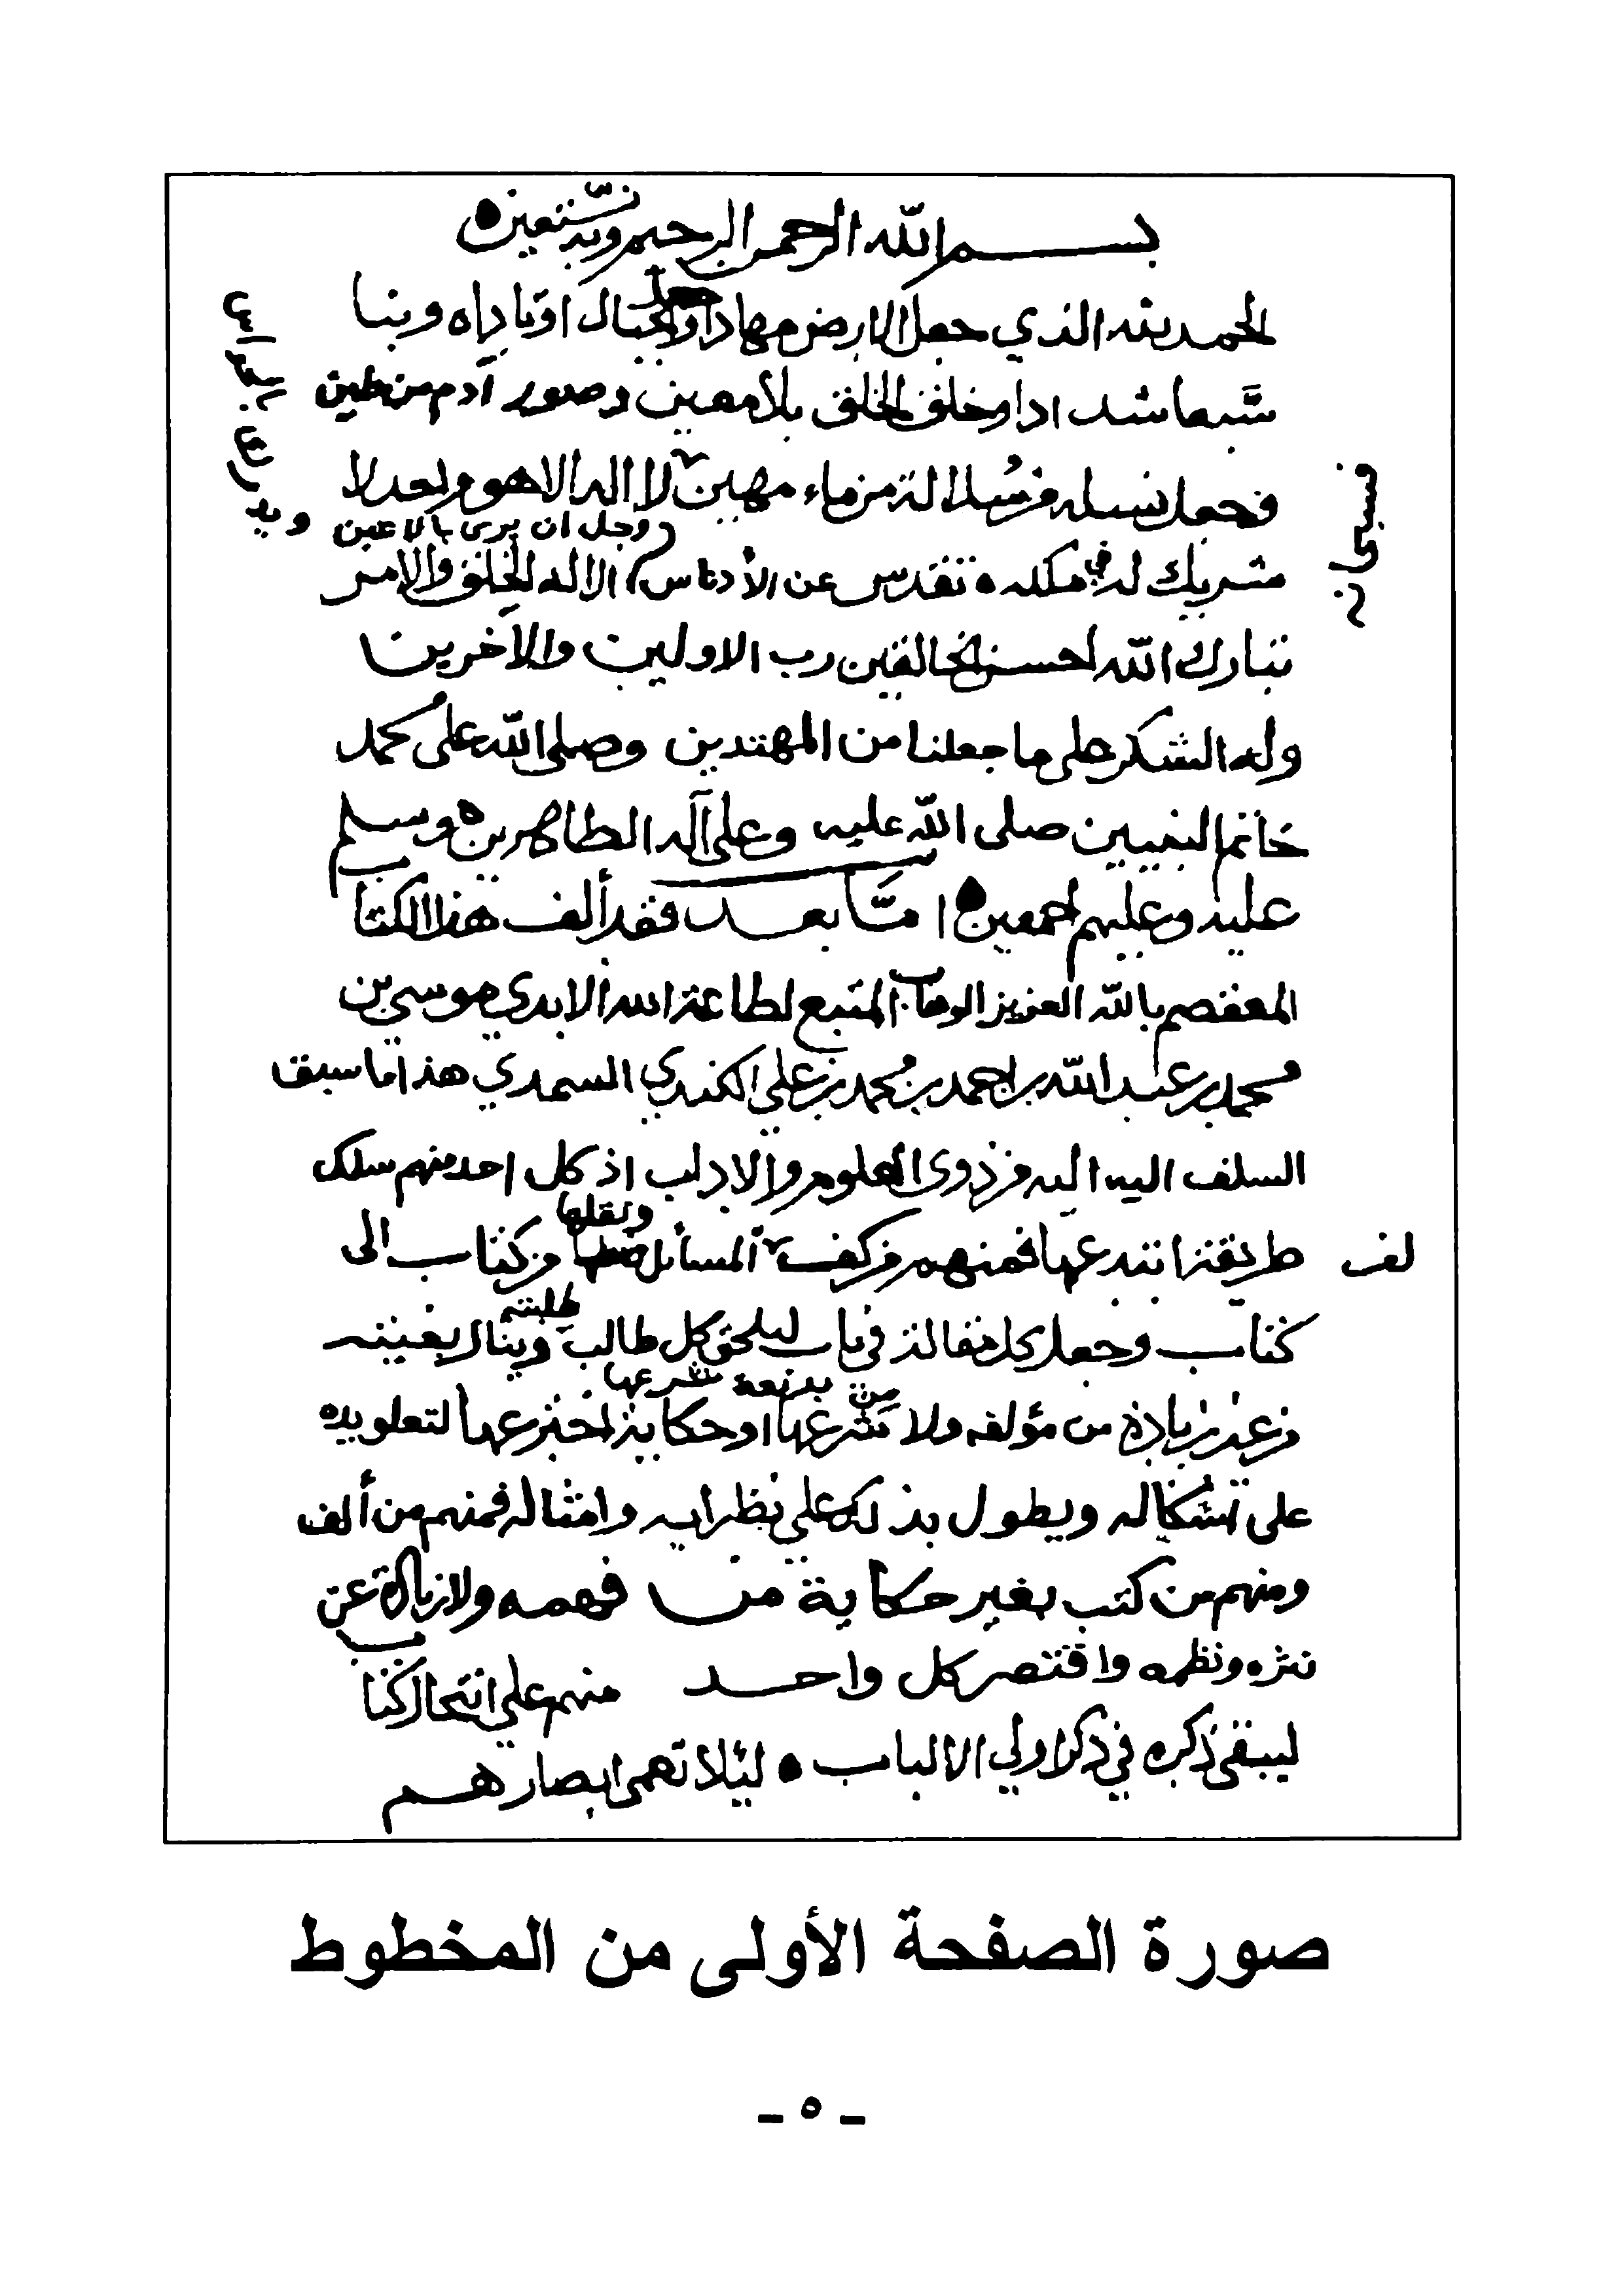 بسم الله الرحمن الرحيم وبه نستعين
الحمد لله الذي جعل الارض مهادا وجعل الجبال اوتادا وبنا
سبعا شدادا وخلق الخلق بلا معين وصور آدم من طين
فجعل نسله من سُلالة من ماء مهين لا اله الا هو واحد لا
شريك له في ملكه تقدس عن الأدناس وجل ان يرى بالاعين الا له الخلق والامر
تبارك الله احسن الخالقين رب الاولين والآخرين
وله الشكر على ما جعلنا من المهتدين وصلى الله على محمد
خاتم النبيين صلى الله عليه وعلى آله الطاهرين وسلم
عليه وعليهم اجمعين امّا بعد فقد ألف هذا الكتاب
المعتصم بالله العزيز الوهاب المتبع لطاعة الله الابدي موسى بن
محمد بن عبد الله بن احمد بن محمد بن علي الكندي السمدي هذا ما سبق
السلف اليه اليه من ذوى العلوم والاداب اذ كل احد منهم سلك
طريقة ابتدعها فمنهم من المسائل ونقلها من كتاب الى
كتاب وجعل كل مقالة في باب ليلحق كل طالب طلبته وينال بغيته
من غير زيادة من مؤلفه ولا من بدعة شرعها او حكاية اخترعها
على اشكاله ويطول بذلك على نظرايه وامثاله فمنهم من ألف
ومنهم من كتب بغير حكاية من فهمه ولا زيادة عن
نثره ونظمه واقتصر كل واحد منهم على انتحال كتاب
ليبقى ذكره في ذكر اولي الالباب لئلا تعمى ابصارهم
صورة الصفحة الأولى من المخطوط
- ٥ -